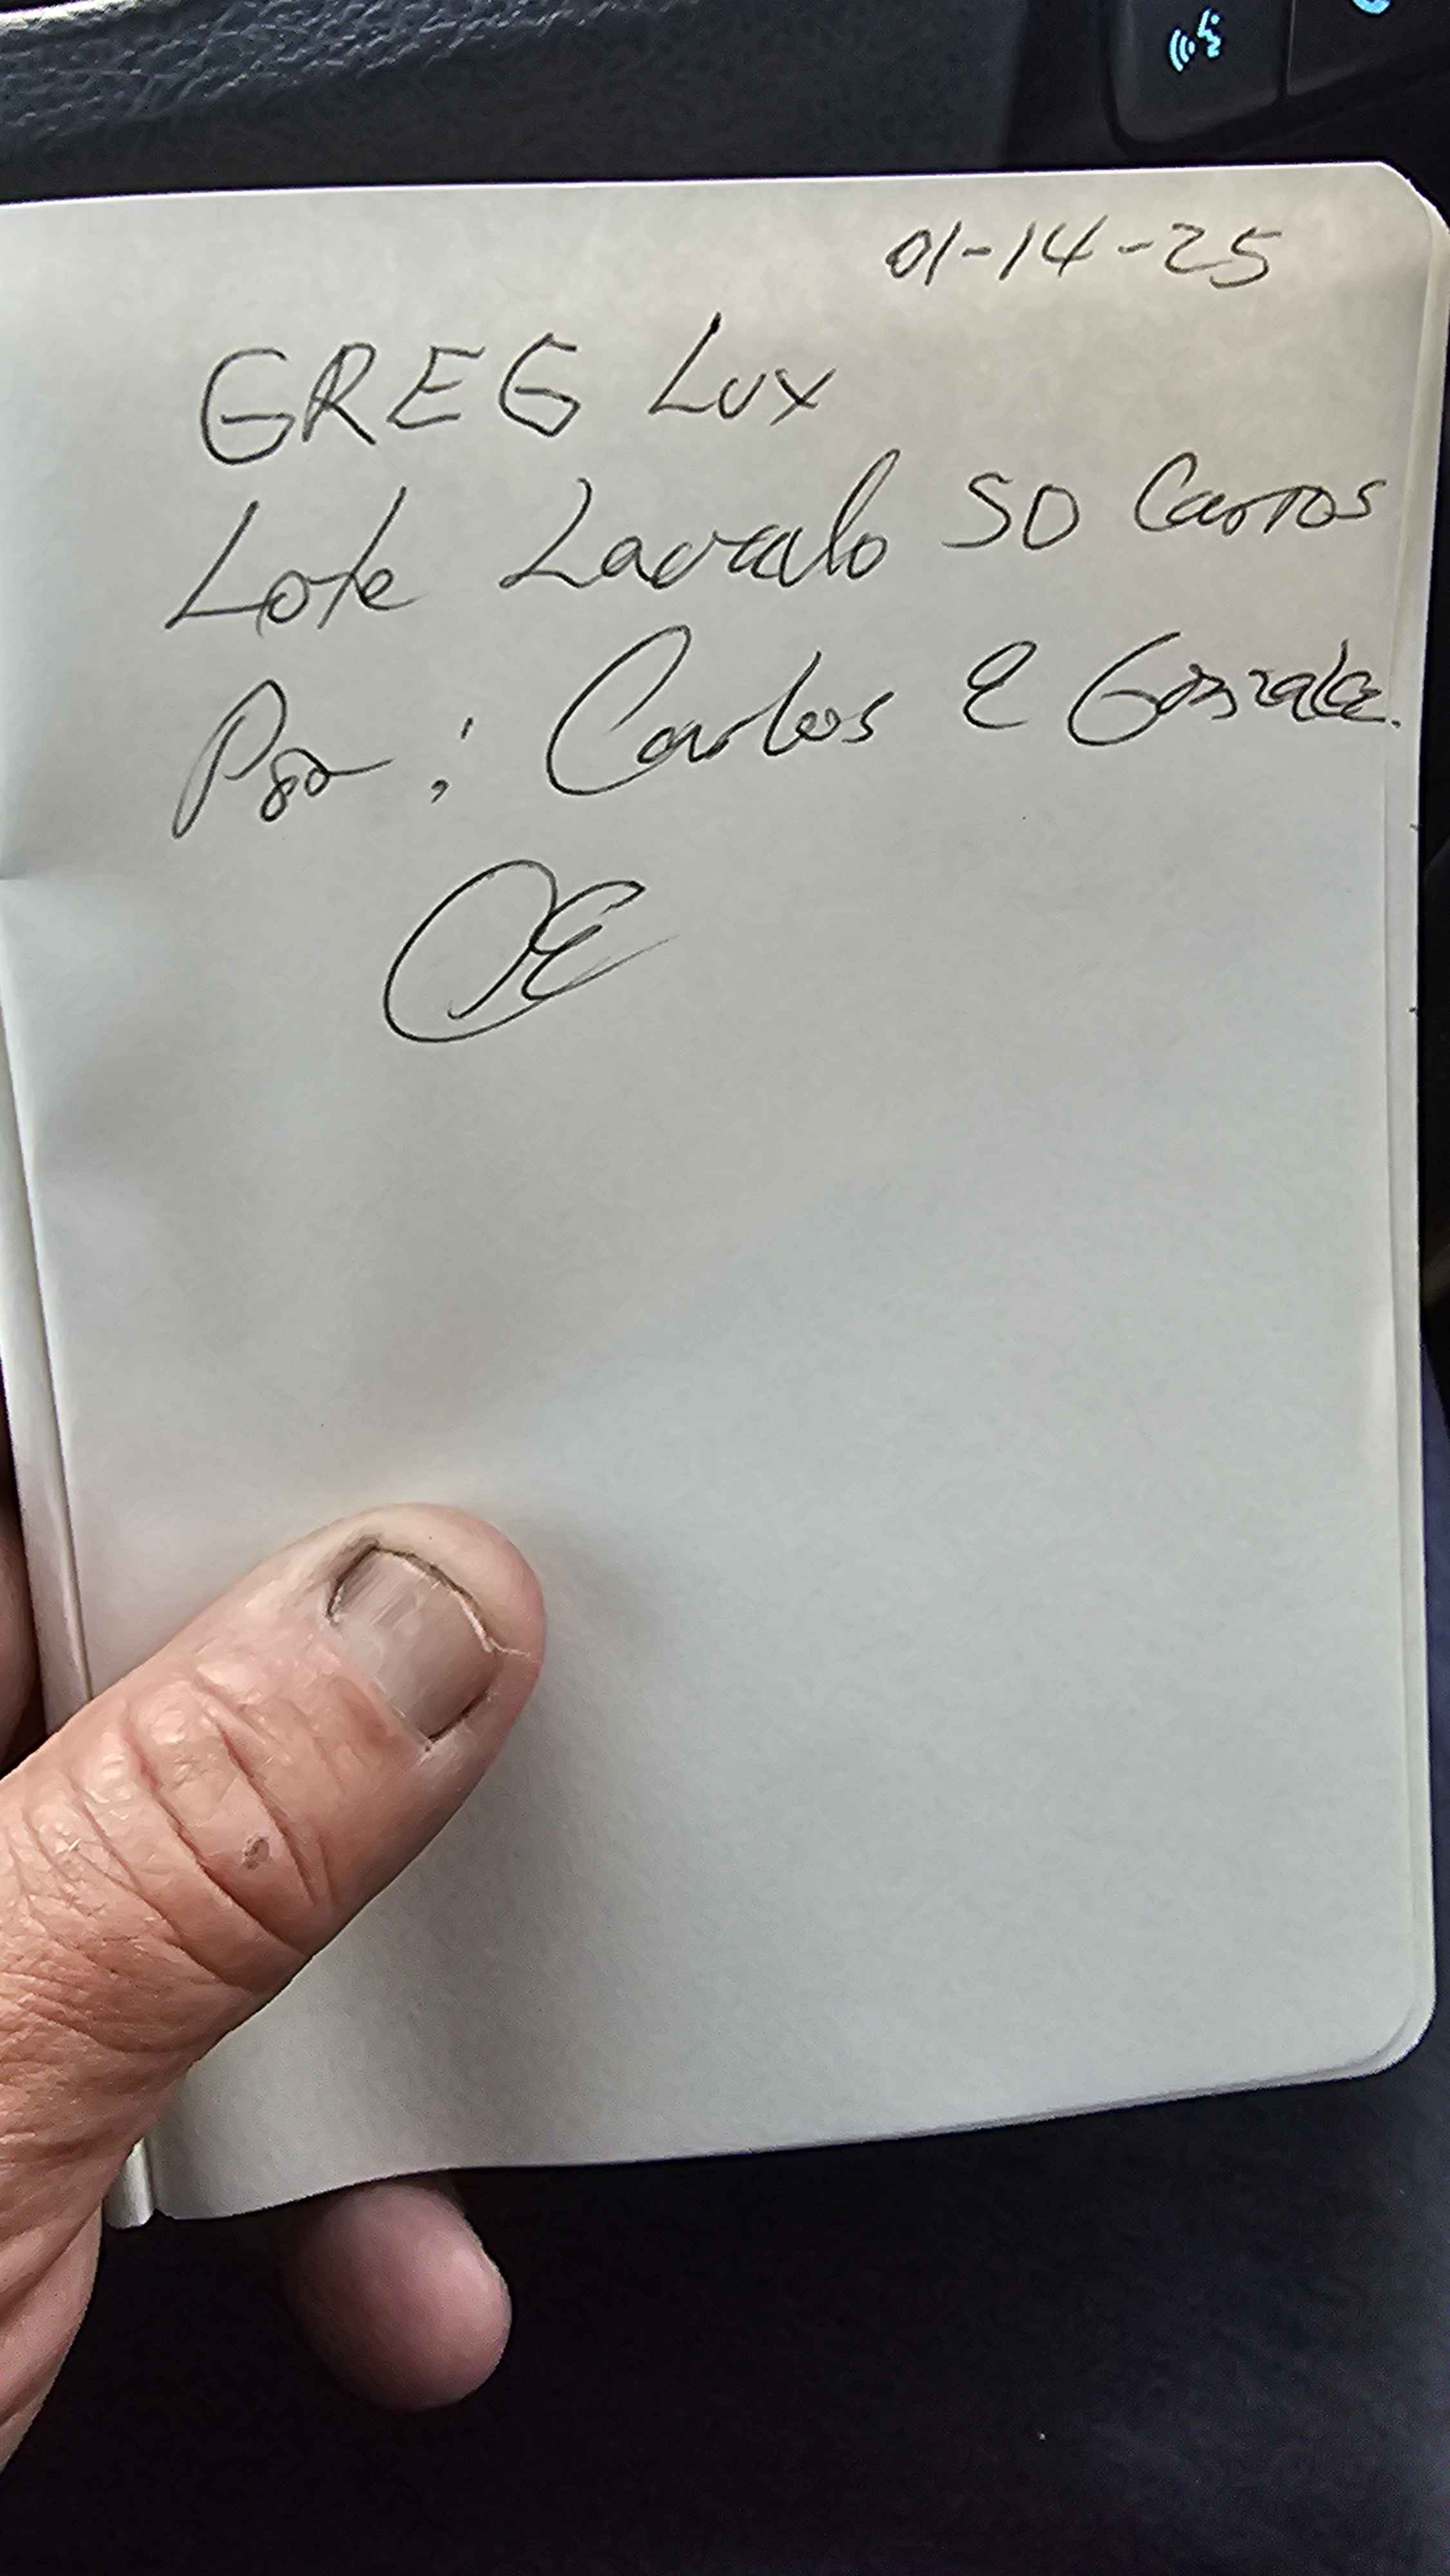 01-14-25
GREG LUX
Lote Lavado 50 Carros
Por: Carlos E Gonzalez.